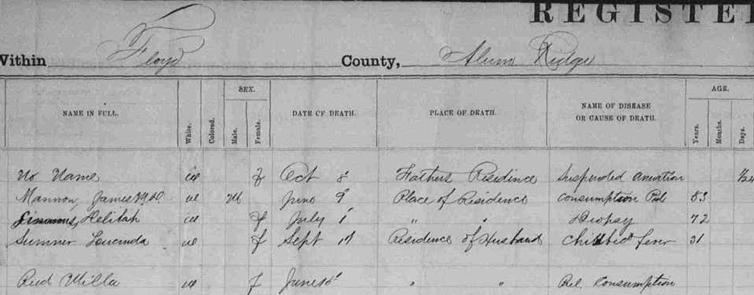 REGISTE
Within Floyd County, Alum Ridge
SEX. AGE.
NAME IN FULL. White. Colored. Male. Female. DATE OF DEATH. PLACE OF DEATH. NAME OF DISEASE OR CAUSE OF DEATH. Years. Months. Days.
No Name w f Oct Fathers Residence Suspended anination
Mannon, James w M June 9 Place of Residence Consumption 83
w f July 1 " " Dropsy 72
Sumner Lucinda w f Sept Residence of Husband Childbed fever 31
Reed Willa w f June " " Consumption